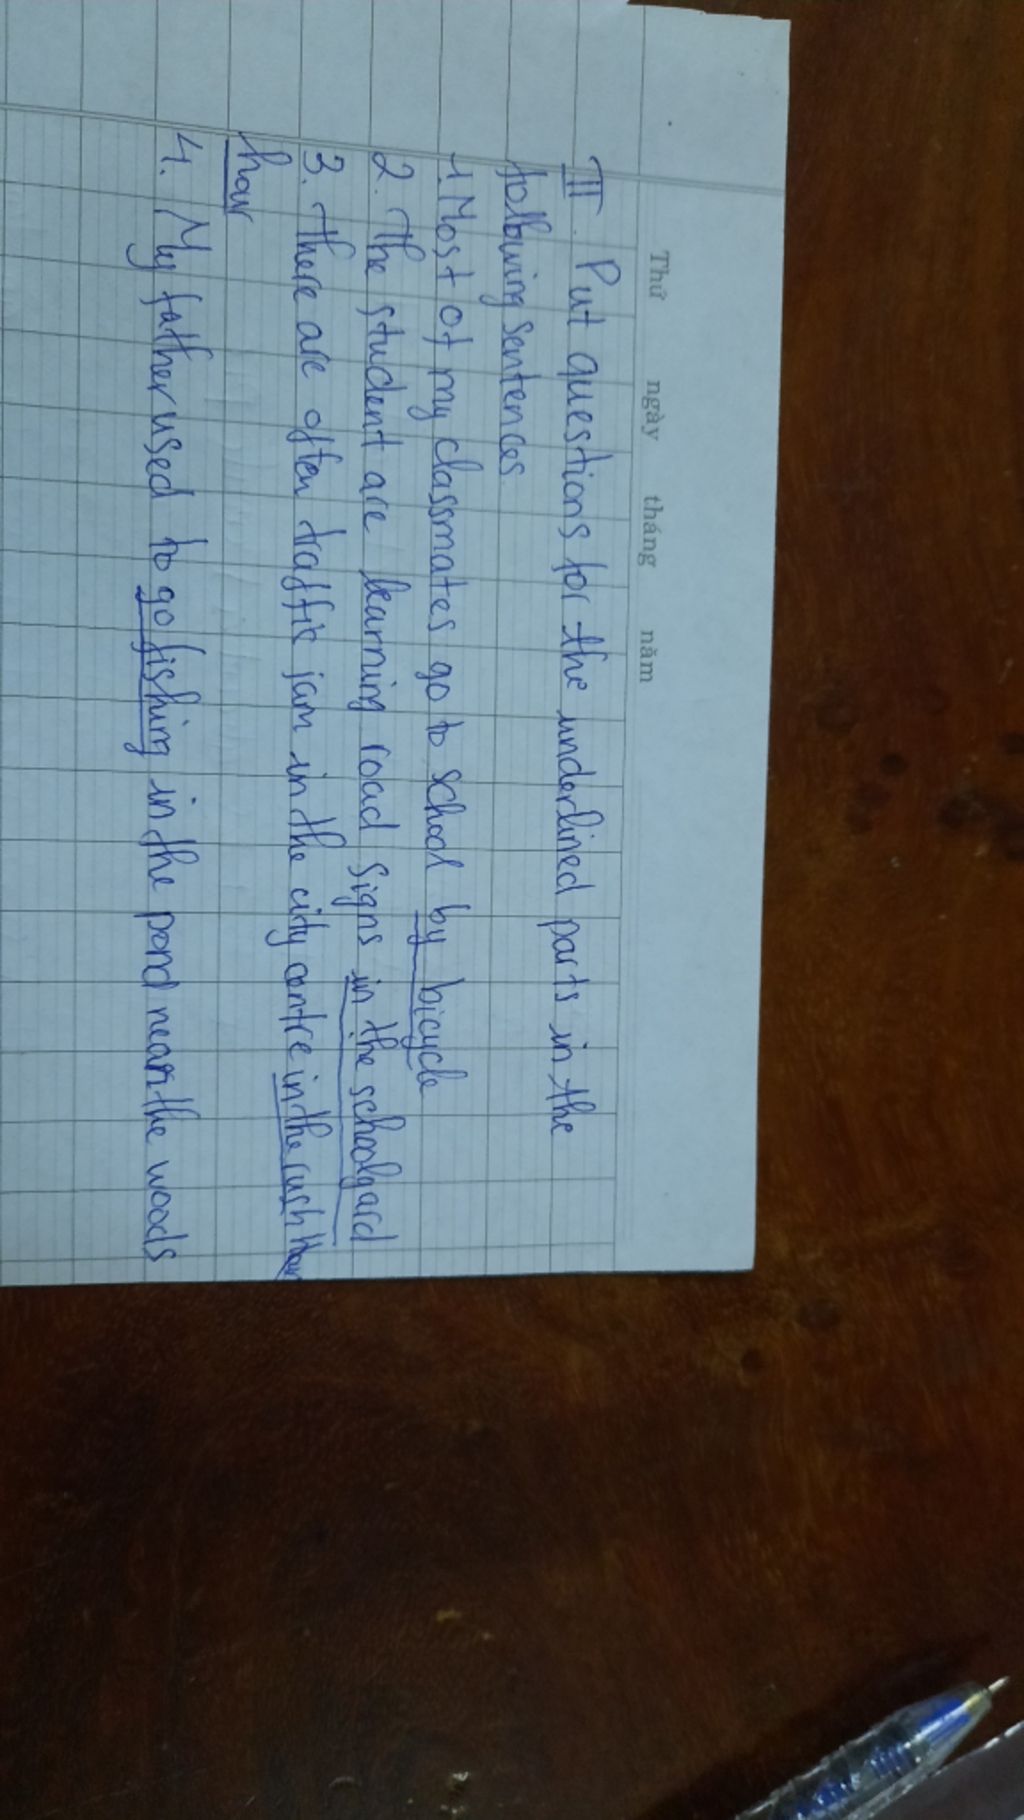 Thứ ngày tháng năm
II. Put questions for the underlined parts in the
following sentences.
1. Most of my classmates go to school by bicycle
2. The student are learning road signs in the schoolyard
3. There are often traffic jam in the city centre in the rush
hour
4. My father used to go fishing in the pond near the woods